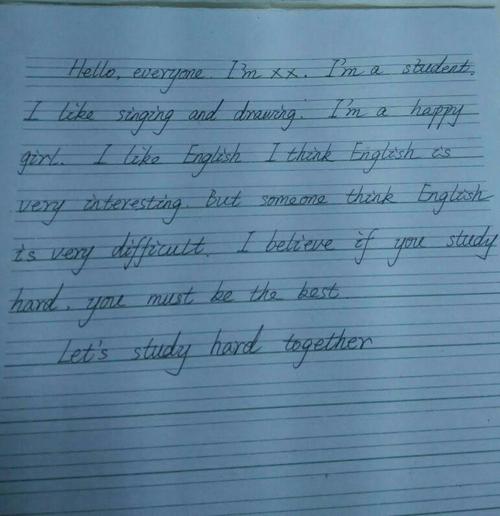 Hello, everyone. I'm xx. I'm a student.
I like singing and drawing. I'm a happy
girl. I like English I think English is
very interesting. But someone think English
is very difficult. I believe if you study
hard, you must be the best.
Let's study hard together